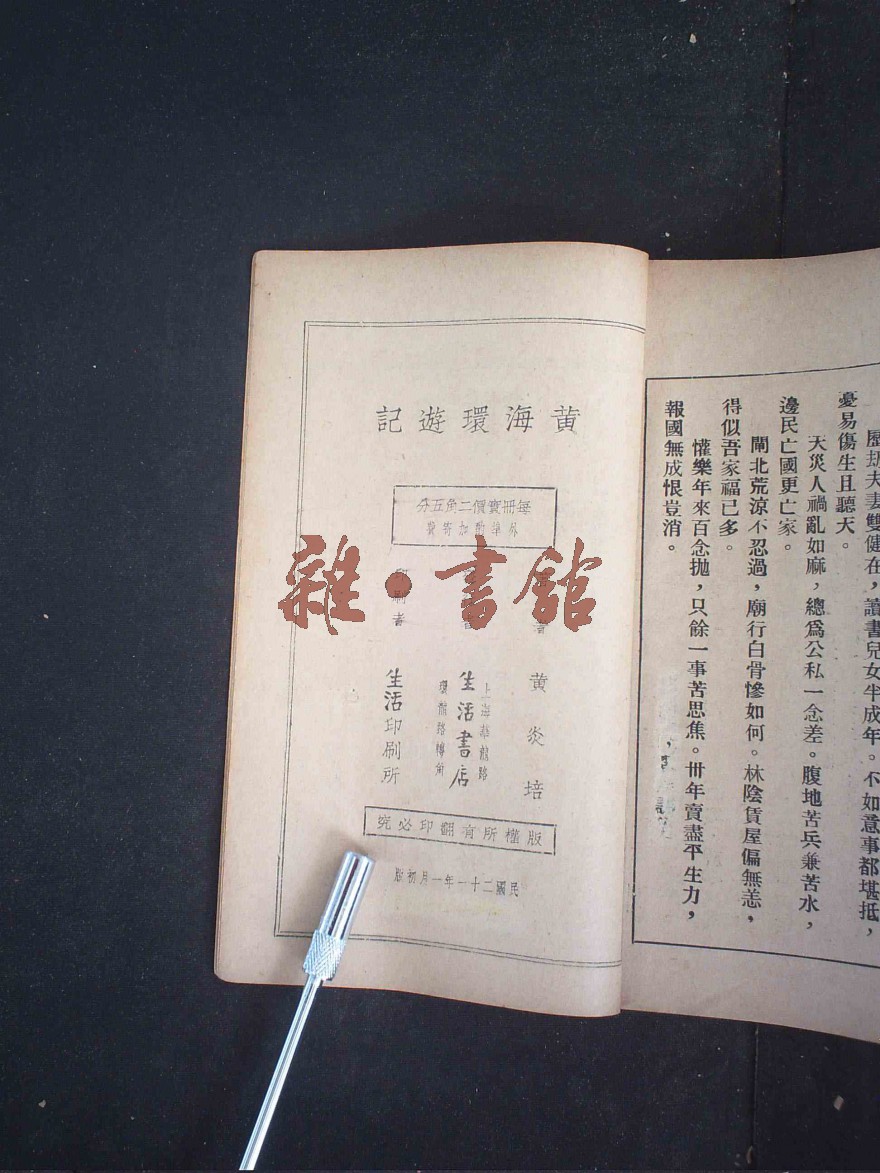 歷劫夫妻雙健在，讀書兒女半成年。不如意事都堪抵，
憂易傷生且聽天。
天災人禍亂如麻，總爲公私一念差。腹地苦兵兼苦水，
邊民亡國更亡家。
閘北荒涼不忍過，廟行白骨慘如何。林陰賃屋偏無恙，
得似吾家福已多。
懽樂年來百念拋，只餘一事苦思焦。卅年賣盡平生力，
報國無成恨豈消。
黃海環遊記
每冊實價二角五分
外埠酌加寄費
著
黃炎培
上海華龍路
生活書店
環龍路轉角
印刷者
生活印刷所
版權所有翻印必究
民國二十一年一月初版
雜·書館